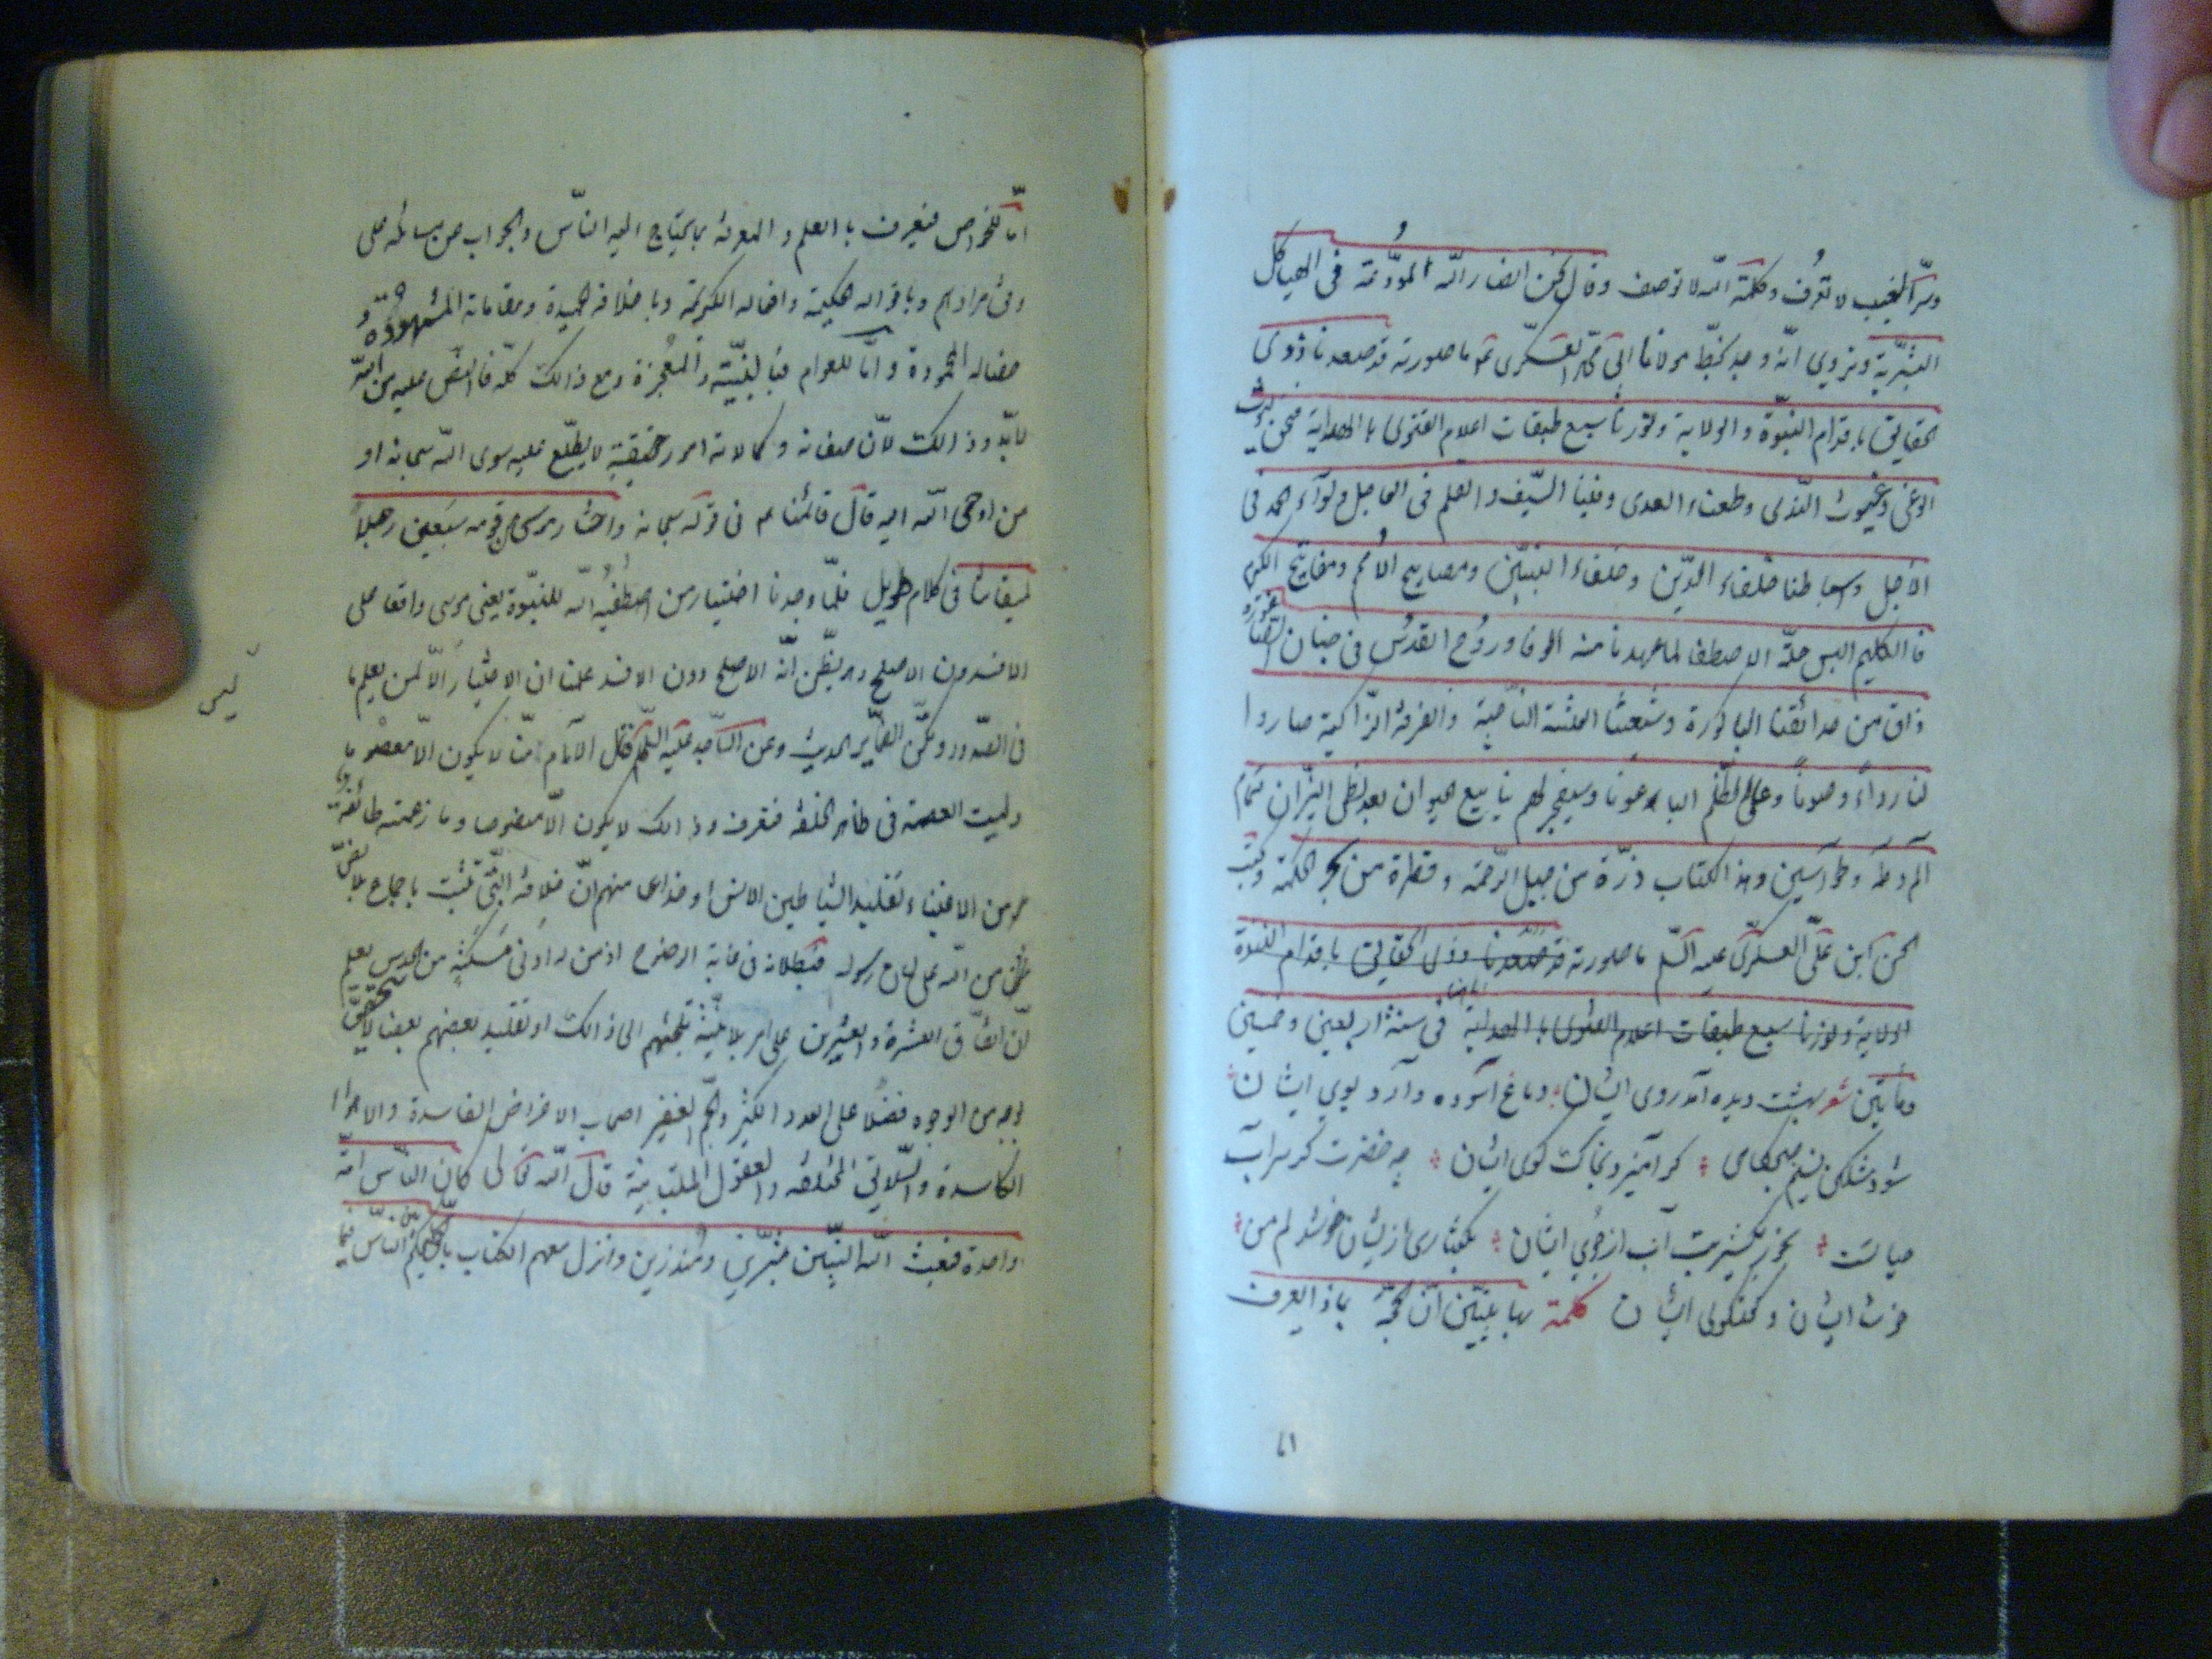 وسرّ الغيب لا تعرف وكلمة الله لا توصف وقال نحن اسرار الله المودعة في الهياكل
البشريّة ونروي انّه وجد بخطّ مولانا ابي محمّد العسكري ع ما صورته قد صعدنا ذرى
الحقايق باقدام النبوّة والولاية ونوّرنا سبع طبقات اعلام الفتوى بالهداية فنحن ليوث
الوغى وغيوث النّدى وطعناء العدى وفينا السّيف والقلم في العاجل ولوآء الحمد في
الآجل واسباطنا خلفاء الدّين وخلفاء النبيّين ومصابيح الأمم ومفاتيح الكرم
فالكليم البس حلّة الاصطفا لما عهدنا منه الوفا وروح القدس في جنان الصاقورة
ذاق من حدائقنا الباكورة وشيعتنا الفئة الناجية والفرقة الزّاكية صاروا
لنا ردآءً وصوناً وعلى الظّلم البا عونا وسيفجر لهم ينابيع الحيوان بعد لظى النيّران تمام
آلم وطه وطواسين وهذا الكتاب ذرّة من جبل الرّحمة وقطرة من بحر الحكمة وكتب
الحسن ابن عليّ العسكريّ عليه السّلم ما صورته قد صعدنا ذرى الحقايق باقدام النبوّة
الولاية ونوّرنا سبع طبقات اعلام الفتوى بالهداية في سنة اربعين وخمسين
ومأتين شعر بهشت ديده آمد روى ايشان دماغ آسوده وآرد بوي ايشان
شود مشكين نسيم صبحكاهى كر آميزد بخاك كوى ايشان چه خضرت كر سر آب
حياتست بخور يكشربت آب از جوي ايشان بكفتارى ازيشان خوشدلم من
حرف ايشان وكفتكوى ايشان كلمة بها يتبيّن انّ الحجّة بماذا يعرف
٧١
امّا للخواص فيعرف بالعلم والمعرفة بما يحتاج اليه النّاس والجواب عن مسائله على
وفق مرادهم وباقواله الحكيمة وافعاله الكريمة وباخلاقه الحميدة ومقاماته المشهودة و
خصاله المحمودة وامّا للعوام فبالبيّنة والمعجزة ومع ذالك كلّه فالنصّ عليه من الله
لابدّ وذالك لأنّ صفاته وكمالاته امور خفيّة لا يطّلع عليه سوى الله سبحانه او
من اوحى الله اليه قال قائمنا ع في قوله سبحانه واختار موسى قومه سبعين رجلاً
لميقاتنا في كلام طويل فلمّا وجدنا اختيار من اصطفيه الله للنبّوة يعني موسى واقعا على
الافسد دون الاصلح وهو يظّن انّه الاصلح دون الافسد علمنا ان لا اختيار الاّ لمن يعلم ما
في الصّدور وتكنّ الضّماير الحديث وعن السّاجد عليه السّلم قال الامام منّا لا يكون الاّ معصوما
وليست العصمة في ظاهر الخلقة فتعرف وذالك لا يكون الاّ منصوصا وما زعمته طائفة
ليس
من الاغنياء تقليد الشياطين الانس او خداعا منهم انّ خلافة النّبيّ تثبت باجماع بلا نصّ
من الله على لسان رسوله فبطلانه في غاية الوضوح اذ من له ادنى مسكة من الحدس يعلم
انّ اتّفاق العشرة والعشرين على امر بلا بيّنة تلجئهم الى ذالك او تقليد بعضهم بعضا لا يتحقّق
بوجه من الوجوه فضلاً على العدد الكثير والجمّ الغفير اصحاب الاغراض الفاسدة والاهواء
الكاسدة والسّلايق المختلفه والعقول المتباينة قال الله تعالى كان النّاس امّة
واحدة فبعث الله النبيّين مبشّرين ومنذرين وانزل معهم الكتاب بالحقّ ليحكم بين النّاس فيما